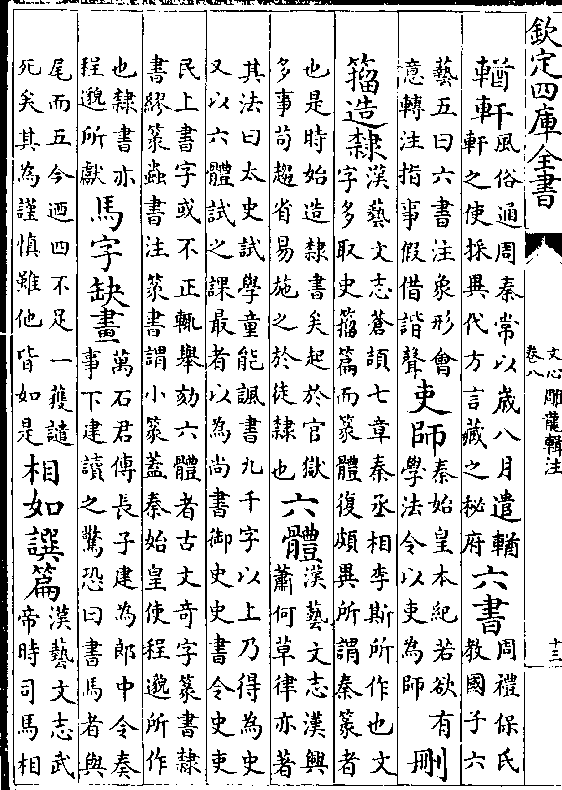 欽定四庫全書
文心雕龍輯注
卷八
十三
輶軒
風俗通周秦常以歲八月遣輶
軒之使採異代方言藏之秘府
六書
周禮保氏
教國子六
藝五曰六書注象形會
意轉注指事假借諧聲
吏師
秦始皇本紀若欲有
學法令以吏為師
刪
籀造隸
漢藝文志蒼頡七章秦丞相李斯所作也文
字多取史籀篇而篆體復頗異所謂秦篆者
也是時始造隸書矣起於官獄
多事苟趨省易施之於徒隸也
六體
漢藝文志漢興
蕭何草律亦著
其法曰太史試學童能諷書九千字以上乃得為史
又以六體試之課最者以為尚書御史史書令史吏
民上書字或不正輒舉劾六體者古文奇字篆書隸
書繆篆蟲書注篆書謂小篆蓋秦始皇使程邈所作
也隸書亦
程邈所獻
馬字缺畫
萬石君傳長子建為郎中令奏
事下建讀之驚恐曰書馬者與
尾而五今迺四不足一獲譴
死矣其為謹慎雖他皆如是
相如譔篇
漢藝文志武
帝時司馬相